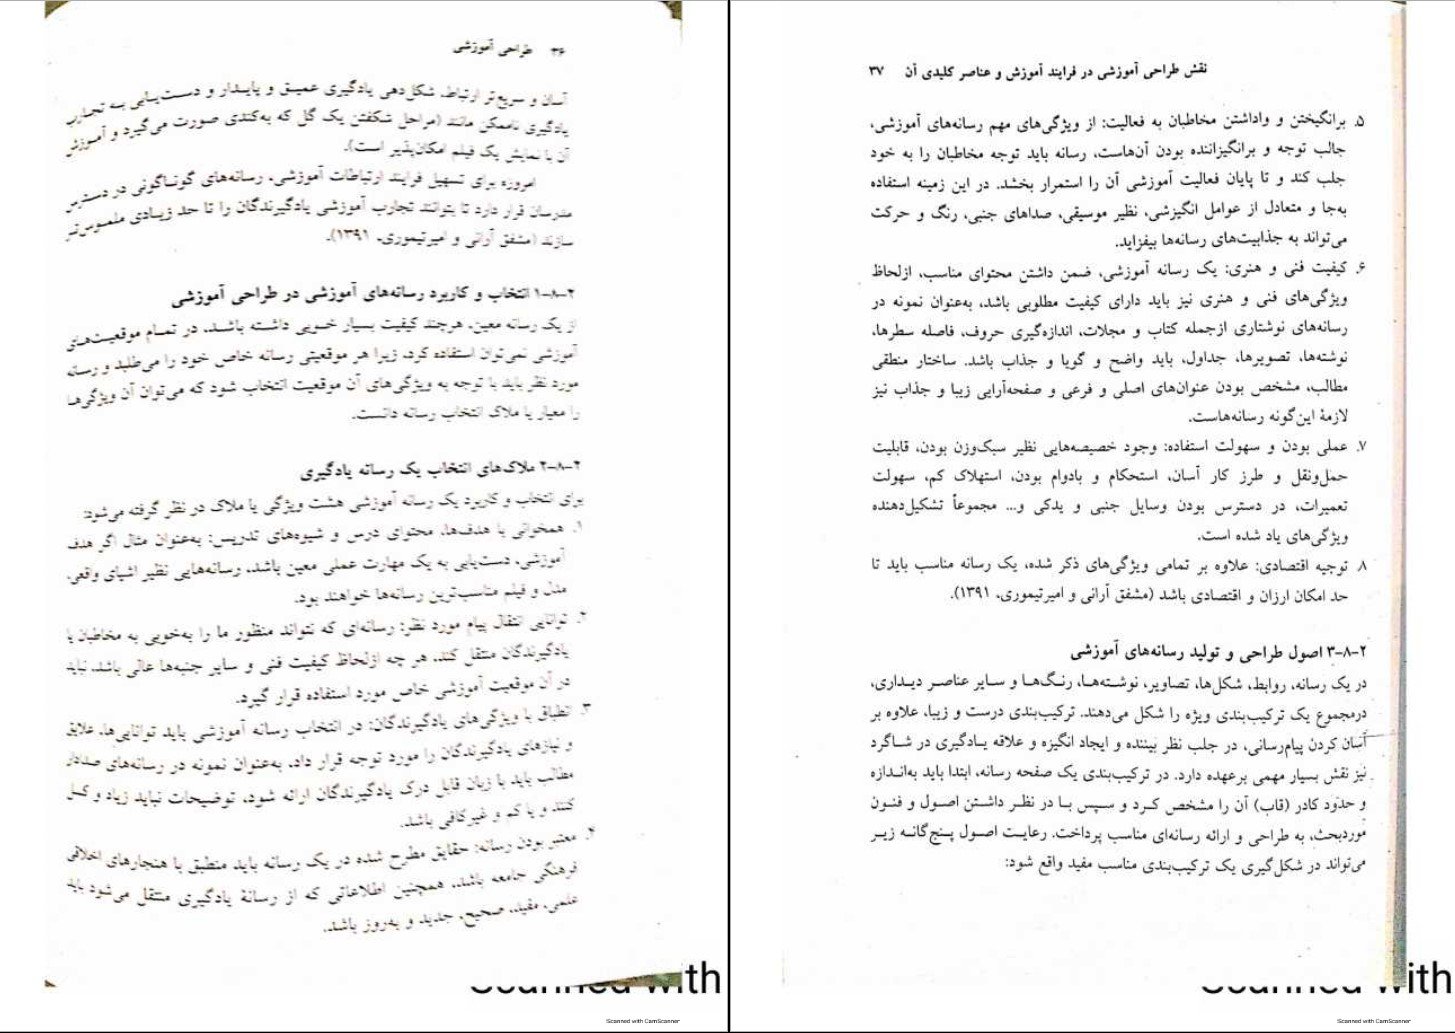 ۳۶ طراحی آموزشی
آسان و سریع‌تر ارتباط، شکل‌دهی یادگیری عمیق و پایدار و دست‌یابی به تجارب
یادگیری ناممکن مانند (مراحل شکفتن یک گل که به‌کندی صورت می‌گیرد و آموزش
آن با نمایش یک فیلم امکان‌پذیر است).
امروزه برای تسهیل فرایند ارتباطات آموزشی، رسانه‌های گوناگونی در دسترس
مدرسان قرار دارد تا بتوانند تجارب آموزشی یادگیرندگان را تا حد زیادی ملموس‌تر
سازند (مشفق آرانی و امیرتیموری، ۱۳۹۱).
۲-۸-۱ انتخاب و کاربرد رسانه‌های آموزشی در طراحی آموزشی
از یک رسانه معین، هرچند کیفیت بسیار خوبی داشته باشد، در تمام موقعیت‌های
آموزشی نمی‌توان استفاده کرد، زیرا هر موقعیتی رسانه خاص خود را می‌طلبد و رسانه
مورد نظر باید با توجه به ویژگی‌های آن موقعیت انتخاب شود که می‌توان آن ویژگی‌ها
را معیار یا ملاک انتخاب رسانه دانست.
۲-۸-۲ ملاک‌های انتخاب یک رسانه یادگیری
برای انتخاب و کاربرد یک رسانه آموزشی هشت ویژگی یا ملاک در نظر گرفته می‌شود:
۱. همخوانی با هدف‌ها، محتوای درس و شیوه‌های تدریس: به‌عنوان مثال اگر هدف
آموزشی، دست‌یابی به یک مهارت عملی معین باشد، رسانه‌هایی نظیر اشیای واقعی،
مدل و فیلم مناسب‌ترین رسانه‌ها خواهند بود.
۲. توانایی انتقال پیام مورد نظر: رسانه‌ای که نتواند منظور ما را به‌خوبی به مخاطبان یا
یادگیرندگان منتقل کند، هر چه ازلحاظ کیفیت فنی و سایر جنبه‌ها عالی باشد، نباید
در آن موقعیت آموزشی خاص مورد استفاده قرار گیرد.
۳. انطباق با ویژگی‌های یادگیرندگان: در انتخاب رسانه آموزشی باید توانایی‌ها، علایق
و نیازهای یادگیرندگان را مورد توجه قرار داد، به‌عنوان نمونه در رسانه‌های صدادار
مطالب باید با زبان قابل درک یادگیرندگان ارائه شود، توضیحات نباید زیاد و کسل
کنند و یا کم و غیرکافی باشد.
۴. معتبر بودن رسانه: حقایق مطرح شده در یک رسانه باید منطبق با هنجارهای اخلاقی
فرهنگی جامعه باشد، همچنین اطلاعاتی که از رسانهٔ یادگیری منتقل می‌شود باید
علمی، مفید، صحیح، جدید و به‌روز باشد.
Scanned with
Scanned with CamScanner
نقش طراحی آموزشی در فرایند آموزش و عناصر کلیدی آن ۳۷
۵. برانگیختن و واداشتن مخاطبان به فعالیت: از ویژگی‌های مهم رسانه‌های آموزشی،
جالب توجه و برانگیزاننده بودن آن‌هاست، رسانه باید توجه مخاطبان را به خود
جلب کند و تا پایان فعالیت آموزشی آن را استمرار بخشد. در این زمینه استفاده
به‌جا و متعادل از عوامل انگیزشی، نظیر موسیقی، صداهای جنبی، رنگ و حرکت
می‌تواند به جذابیت‌های رسانه‌ها بیفزاید.
۶. کیفیت فنی و هنری: یک رسانه آموزشی، ضمن داشتن محتوای مناسب، ازلحاظ
ویژگی‌های فنی و هنری نیز باید دارای کیفیت مطلوبی باشد، به‌عنوان نمونه در
رسانه‌های نوشتاری ازجمله کتاب و مجلات، اندازه‌گیری حروف، فاصله سطرها،
نوشته‌ها، تصویرها، جداول، باید واضح و گویا و جذاب باشد. ساختار منطقی
مطالب، مشخص بودن عنوان‌های اصلی و فرعی و صفحه‌آرایی زیبا و جذاب نیز
لازمهٔ این‌گونه رسانه‌هاست.
۷. عملی بودن و سهولت استفاده: وجود خصیصه‌هایی نظیر سبک‌وزن بودن، قابلیت
حمل‌ونقل و طرز کار آسان، استحکام و بادوام بودن، استهلاک کم، سهولت
تعمیرات، در دسترس بودن وسایل جنبی و یدکی و... مجموعاً تشکیل‌دهنده
ویژگی‌های یاد شده است.
۸. توجیه اقتصادی: علاوه بر تمامی ویژگی‌های ذکر شده، یک رسانه مناسب باید تا
حد امکان ارزان و اقتصادی باشد (مشفق آرانی و امیرتیموری، ۱۳۹۱).
۲-۸-۳ اصول طراحی و تولید رسانه‌های آموزشی
در یک رسانه، روابط، شکل‌ها، تصاویر، نوشته‌ها، رنگ‌ها و سایر عناصر دیداری،
درمجموع یک ترکیب‌بندی ویژه را شکل می‌دهند. ترکیب‌بندی درست و زیبا، علاوه بر
آسان کردن پیام‌رسانی، در جلب نظر بیننده و ایجاد انگیزه و علاقه یادگیری در شاگرد
نیز نقش بسیار مهمی برعهده دارد. در ترکیب‌بندی یک صفحه رسانه، ابتدا باید به‌اندازه
و حدود کادر (قاب) آن را مشخص کرد و سپس با در نظر داشتن اصول و فنون
موردبحث، به طراحی و ارائه رسانه‌ای مناسب پرداخت. رعایت اصول پنج‌گانه زیر
می‌تواند در شکل‌گیری یک ترکیب‌بندی مناسب مفید واقع شود:
Scanned with
Scanned with CamScanner